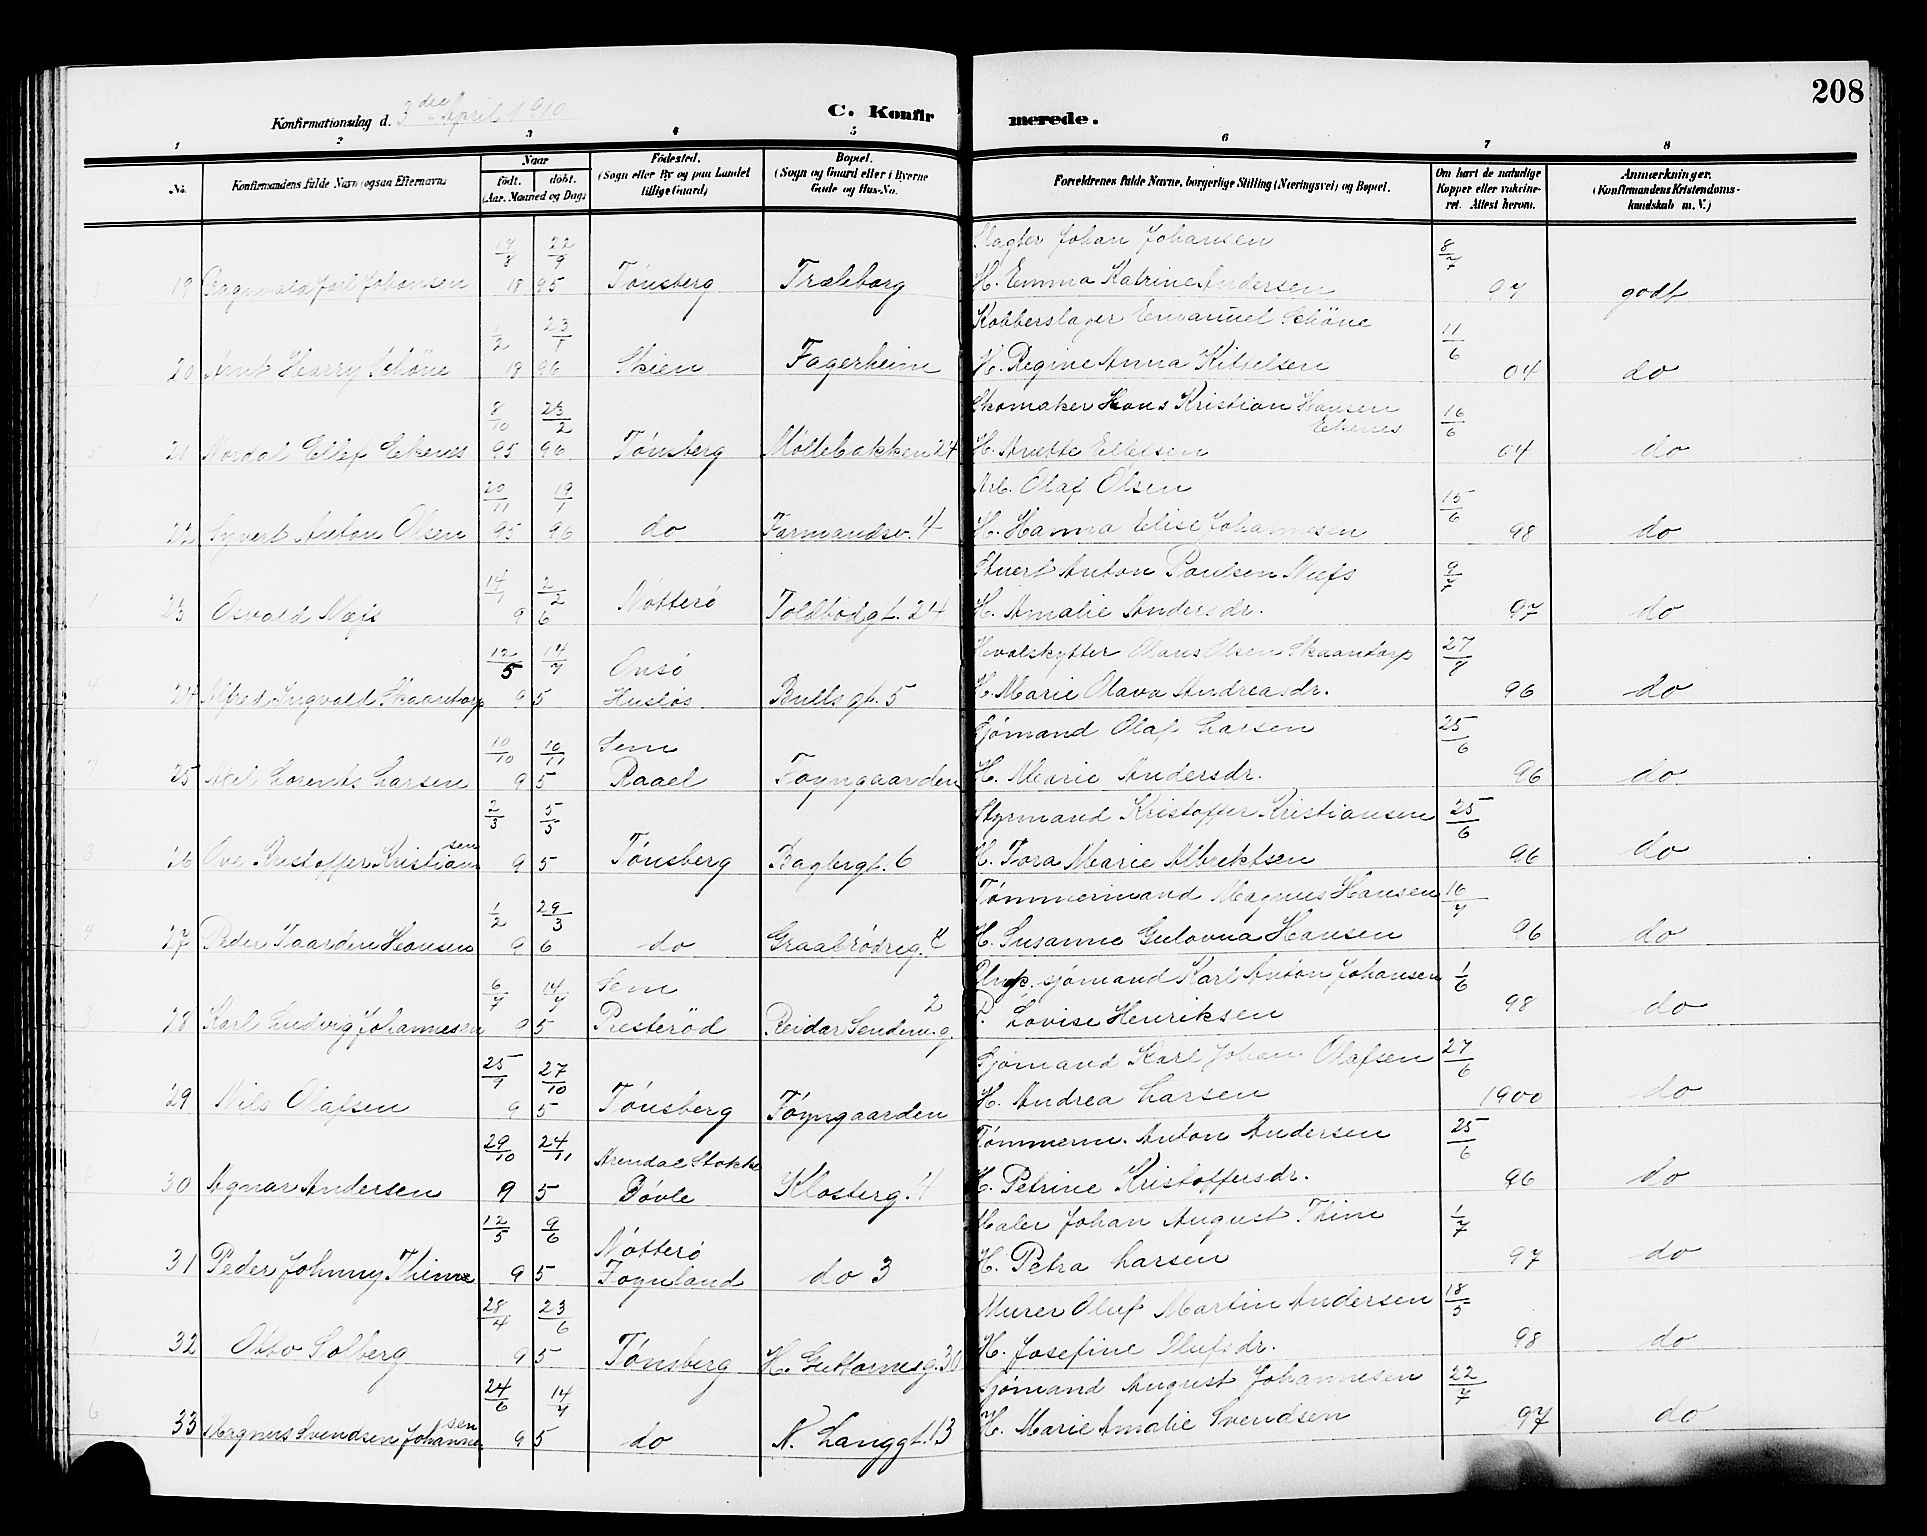 208
Konfirmationsdag d. 3die April 1910
C. Konfirmerede.
1 2 3 4 5 6 7 8
No. Konfirmandens fulde Navn (ogsaa Efternavn) Naar født. døbt. (Aar, Maaned og Dag) Fødested. (Sogn eller By og paa Landet tillige Gaard) Bopæl. (Sogn og Gaard eller i Byerne Gade og Hus-No. Forældrenes fulde Navne, borgerlige Stilling (Næringsvei) og Bopæl. Om havt de naturlige Kopper eller vaksineret. Attest herom. Anmærkninger. (Konfirmandens Kristendomskundskab m. V.)
19/8 22/9 Slagter Johan Johansen 8/7
19 Ragnvald Jarl Johansen 18 95 Tønsberg Træleborg H. Emma Katrine Andersen 97 godt
1/2 23/1 Kobberslager Emanuel Schöne 11/6
20 Arnt Harry Schöne 18 96 Skien Fagerheim H. Regine Anna Kittelsen 04 do
8/10 23/2 Skomaker Hans Kristian Hansen Ekenes 16/6
21 Nordal Ellef Ekenes 95 96 Tønsberg Møllebakken 24 H. Anette Ellefsen 04 do
20/11 19/1 Arb. Olaf Olsen 15/6
22 Syvert Anton Olsen 95 96 do Farmandsv. 4 H. Hanna Elise Johannesen 98 do
14/1 2/2 Stuert Anton Paulsen Næfs 9/7
23 Osvald Næfs 9 6 Nøtterø Toldbodgt. 24 H. Amalie Andersdr. 97 do
12/5 14/7 Onsø Hvalskytter Olaus Olsen Skaantorp 27/7
24 Alfred Ingvald Skaantorp 9 5 Husløs Bullsgt. 5 H. Marie Olava Andreasdr. 96 do
10/10 10/11 Sem Sjømand Olaf Larsen 25/6
25 Axel Lorents Larsen 9 5 Raael Føyngaarden H. Marie Andersdr. 96 do
2/3 5/5 Styrmand Kristoffer Kristiansen 25/6
26 Ove Kristoffer Kristiansen 9 5 Tønsberg Baglergt. 6 H. Tora Marie Albrektsen 96 do
1/2 29/3 Tømmermand Magnus Hansen 16/7
27 Peder Hansen 9 6 do Graabrødreg. H. Susanne Gulovna Hansen 96 do
6/7 14/7 Sem sjømand Karl Anton Johansen 1/6
28 Karl Ludvig Johannesen 9 5 Presterød Reidar Sendem. g. 2 Lovise Henriksen 98 do
25/7 27/10 Sjømand Karl Johan Olafsen 27/6
29 Nils Olafsen 9 5 Tønsberg Føyngaarden H. Andrea Larsen 1900 do
29/10 24/11 Arendal Stokke Tømmerm. Anton Andersen 25/6
30 Agnar Andersen 9 5 Bøvle Klosterg. 4 H. Petrine Kristoffersdr. 96 do
12/5 9/6 Nøtterø Maler Johan August Thime 1/7
31 Peder Johnny Thime 9 5 Føynland do 3 H. Petra Larsen 97 do
28/4 23/6 Murer Oluf Martin Andersen 18/5
32 Otto Solberg 9 5 Tønsberg H. Guttormsg. 30 H. Josefine Olufsdr. 98 do
24/6 14/7 Sjømand August Johannesen 22/7
33 Magnus Svendsen Johannesen 9 5 do N. Langgt. 13 H. Marie Amalie Svendsen 97 do